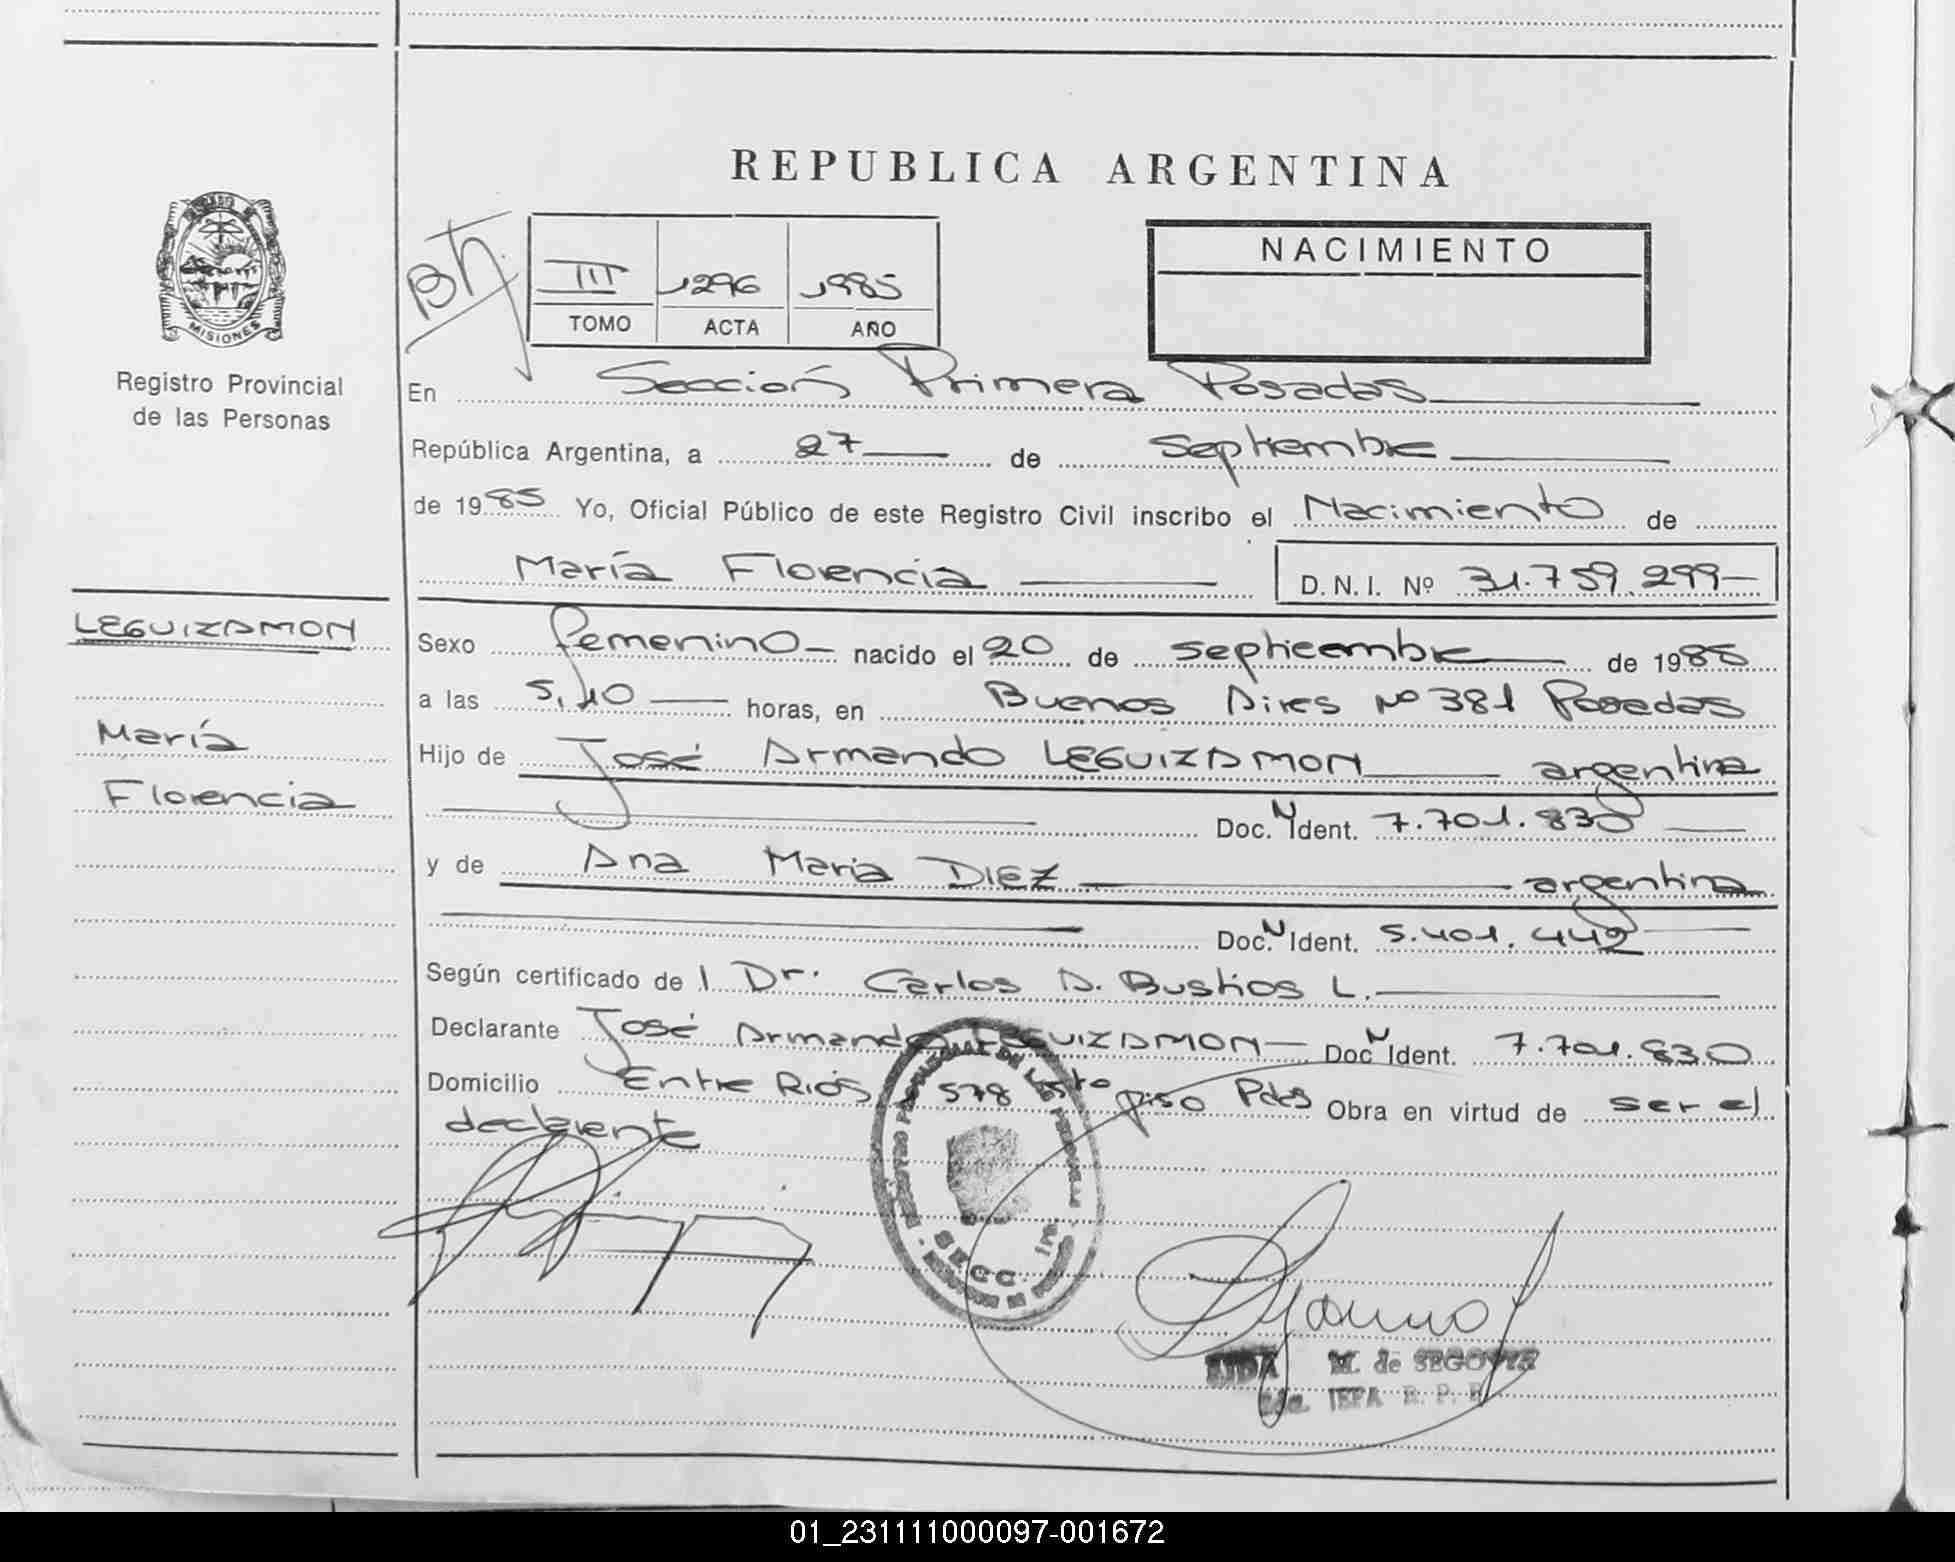 REPUBLICA ARGENTINA
MISIONES
Registro Provincial
de las Personas
III 1296 1985
TOMO ACTA AÑO
NACIMIENTO
En Sección Primera Posadas
República Argentina, a 27 de Septiembre
de 1985 Yo, Oficial Público de este Registro Civil inscribo el Nacimiento de
María Florencia D.N.I. Nº 31.759.299
LEGUIZAMON
María
Florencia
Sexo femenino nacido el 20 de septieembre de 1985
a las 5,10 horas, en Buenos Aires Nº 381 Posadas
Hijo de José Armando LEGUIZAMON argentina
Doc. N Ident. 7.701.830
y de Ana María DIEZ argentina
Doc. N Ident. 5.401.442
Según certificado de l Dr. Carlos A. Bustios L.
Declarante José Armando LEGUIZAMON Doc N Ident. 7.701.830
Domicilio Entre Ríos 578 piso Pdas Obra en virtud de ser el
declarente
SECC. 1ra
M. de SEGOVIA
JEFA R. P. P.
01_231111000097-001672